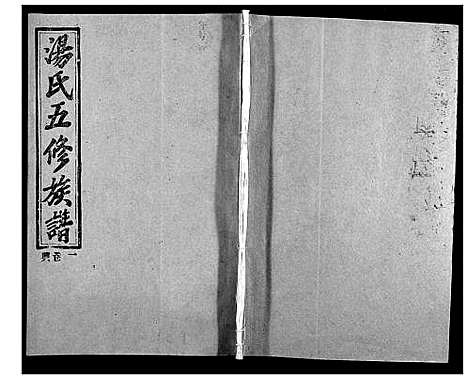 湯氏五修族譜
卷一